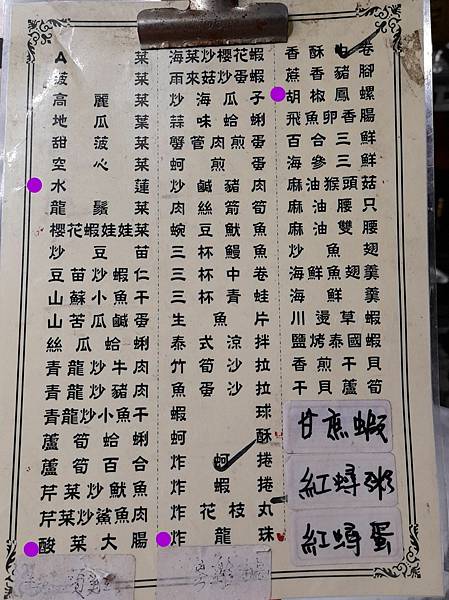 A菜
菠菜
高麗菜
地瓜菜
甜菠菜
空心菜
水蓮
龍鬚菜
櫻花蝦娃娃菜
炒豆苗
豆苗炒蝦仁
山蘇小魚干
山苦瓜鹹蛋
絲瓜蛤蜊
青龍炒牛肉
青龍炒豬肉
青龍炒小魚干
蘆筍蛤蜊
蘆筍百合
芹菜炒魷魚
芹菜炒鯊魚肉
酸菜大腸
海菜炒櫻花蝦
雨來菇炒蛋蝦
炒海瓜子
蒜味蛤蜊
蟹管肉煎蛋
蚵煎蛋
炒鹹豬肉
肉絲箭筍
豌豆魷魚
三杯鰻魚
三杯中卷
三杯青蛙
生魚片
泰式涼拌
竹筍沙拉
魚蛋沙拉
蝦球
蚵酥
炸蚵捲
炸蝦捲
炸花枝丸
炸龍珠
香酥中卷
蔗香豬腳
胡椒鳳螺
飛魚卵香腸
百合三鮮
海參三鮮
麻油猴頭菇
麻油腰只
麻油雙腰
炒魚翅
海鮮魚翅羹
海鮮羹
川燙草蝦
鹽烤泰國蝦
香煎干貝
干貝蘆筍
甘蔗蝦
紅蟳粥
紅蟳蛋